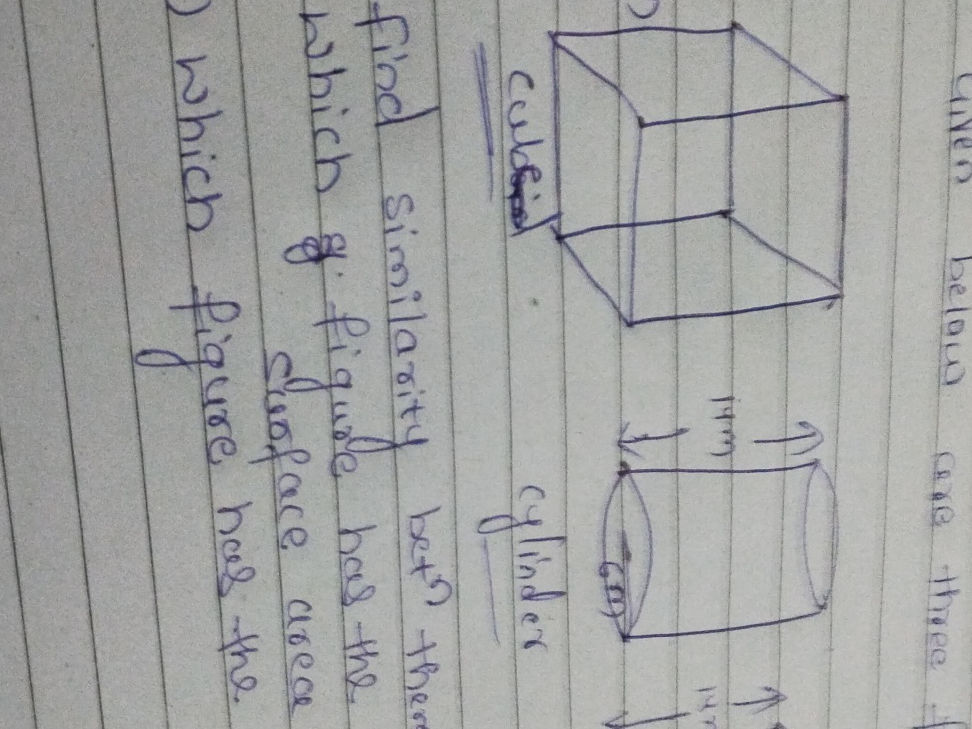 Given below are three
14m
6m
cuboid
cylinder
find similarity betn them
which g. figure has the
surface area
) which figure has the